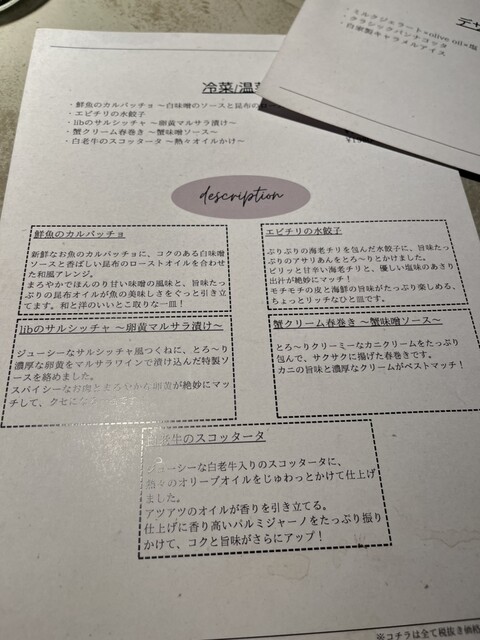 デザ
・ミルクジェラート×olive oil×塩
・クラシックパンナコッタ
・自家製キャラメルアイス
冷菜/温菜
・鮮魚のカルパッチョ 〜白味噌のソースと昆布の
・エビチリの水餃子
・libのサルシッチャ 〜卵黄マルサラ漬け〜
・蟹クリーム春巻き 〜蟹味噌ソース〜
・白老牛のスコッタータ 〜熱々オイルかけ〜
description
鮮魚のカルパッチョ
新鮮なお魚のカルパッチョに、コクのある白味噌
ソースと香ばしい昆布のローストオイルを合わせ
た和風アレンジ。
まろやかでほんのり甘い味噌の風味と、旨味たっ
ぷりの昆布オイルが魚の美味しさをぐっと引き立
てます。和と洋のいいとこ取りな一皿！
エビチリの水餃子
ぷりぷりの海老チリを包んだ水餃子に、旨味たっ
ぷりのアサリあんをとろ〜りとかけました。
ピリッと甘辛い海老チリと、優しい塩味のあさり
出汁が絶妙にマッチ！
モチモチの皮と海鮮の旨味がたっぷり楽しめる、
ちょっとリッチなひと皿です。
libのサルシッチャ 〜卵黄マルサラ漬け〜
ジューシーなサルシッチャ風つくねに、とろ〜り
濃厚な卵黄をマルサラワインで漬け込んだ特製ソ
ースを絡めました。
スパイシーなお肉とまろやかな卵黄が絶妙にマッ
チして、クセにな
蟹クリーム春巻き 〜蟹味噌ソース〜
とろ〜りクリーミーなカニクリームをたっぷり
包んで、サクサクに揚げた春巻きです。
カニの旨味と濃厚なクリームがベストマッチ！
老牛のスコッタータ
ジューシーな白老牛入りのスコッタータに、
熱々のオリーブオイルをじゅわっとかけて仕上げ
ました。
アツアツのオイルが香りを引き立てる。
仕上げに香り高いパルミジャーノをたっぷり振り
かけて、コクと旨味がさらにアップ！
※コチラは全て税抜き価格